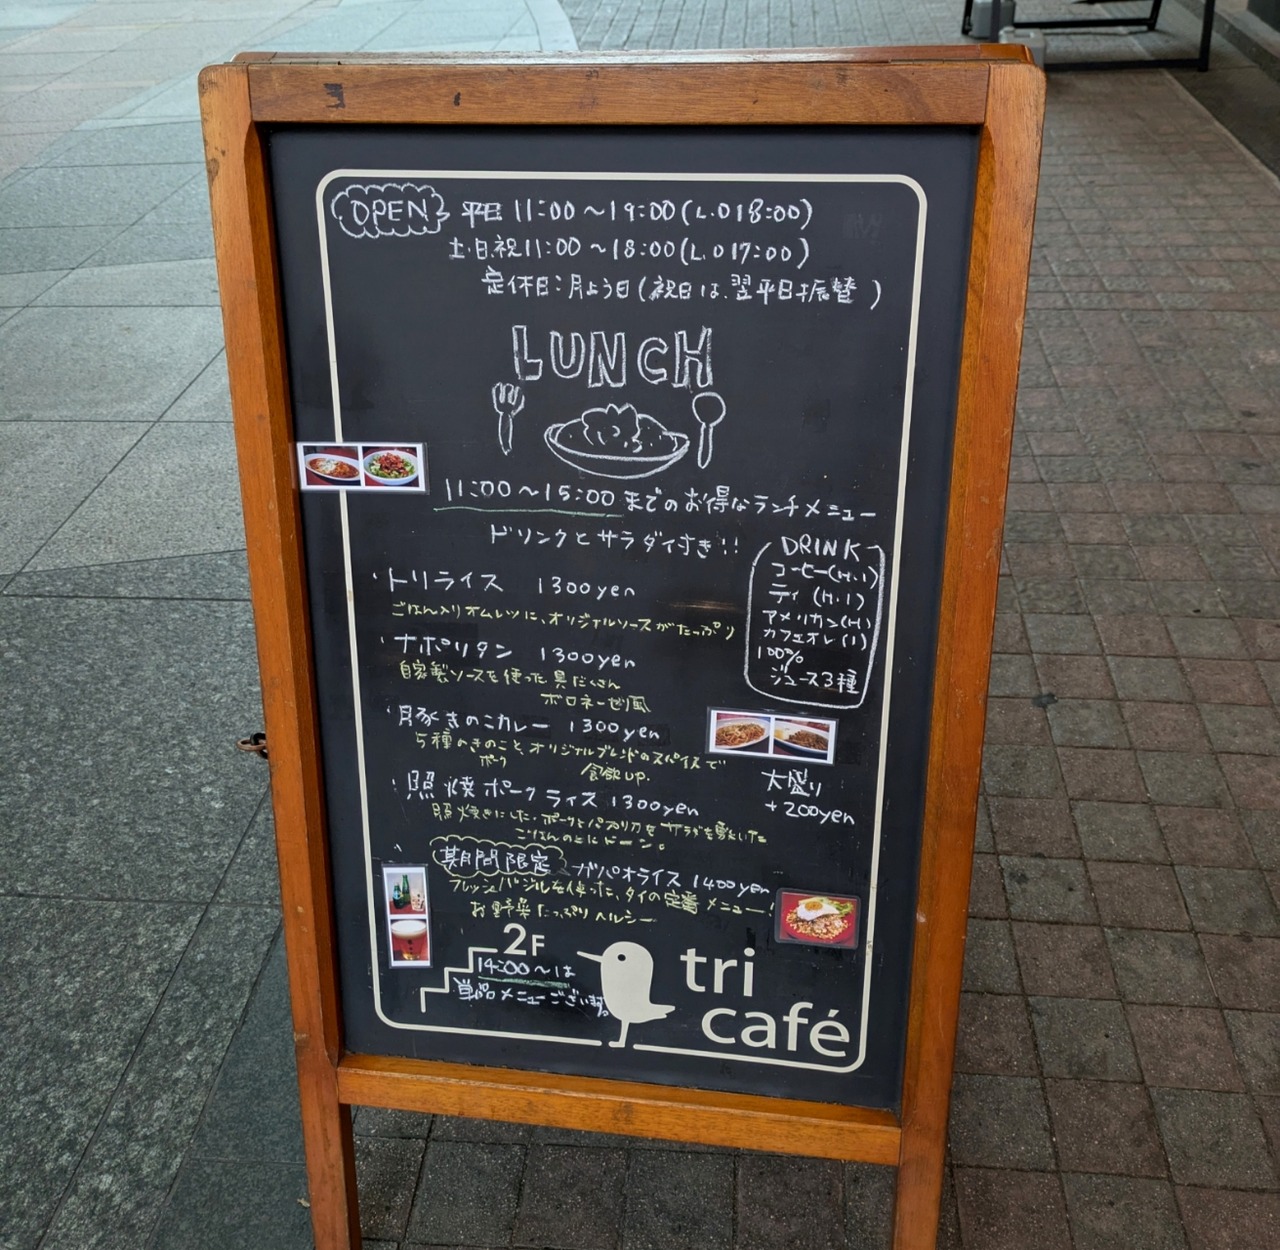 OPEN 平日 11:00～19:00(L.O18:00)
土.日.祝11:00～18:00(L.O17:00)
定休日:月よう日(祝日は、翌平日振替)
LUNCH
11:00～15:00までのお得なランチメニュー
ドリンクとサラダ付き!!
DRINK
コーヒー(H.I)
ティ (H.I)
アメリカン(H)
カフェオレ(I)
100%
ジュース3種
・トリライス 1300yen
ごはん入りオムレツに、オリジナルソースがたっぷり
・ナポリタン 1300yen
自家製ソースを使った具だくさん
ボロネーゼ風
・豚きのこカレー 1300yen
5種のきのことオリジナルブレンドのスパイスで
食欲up.
大盛り
+200yen
ポーク
・照焼ポークライス 1300yen
照焼きにした.ポークとパプリカをサラダを敷いた
ごはんの上にドーン。
期間限定 ガパオライス 1400yen
フレッシュバジルを使った、タイの定番メニュー!
お野菜たっぷりヘルシー
2F
14:00～は
単品メニューございます。
tri
café